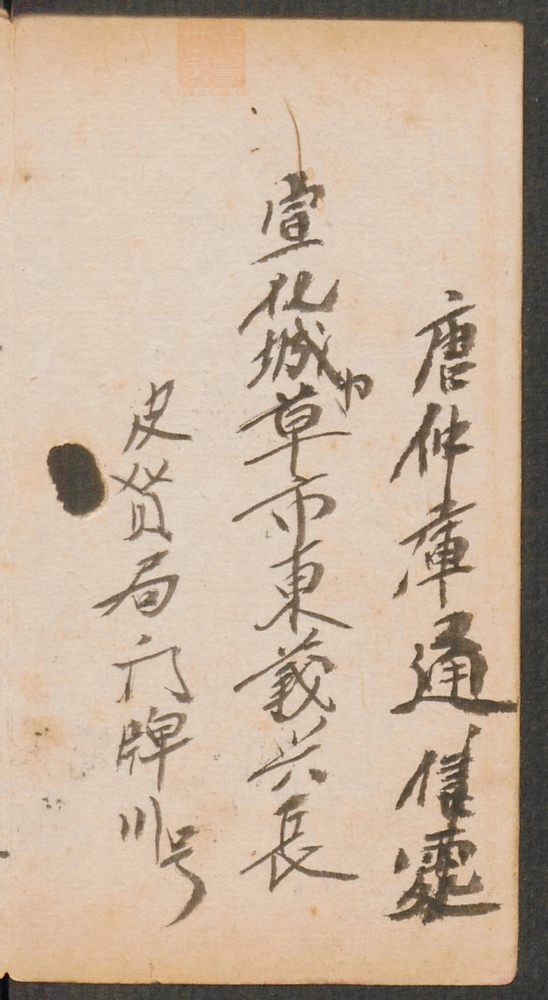 唐仲庫通信處
宣化城中草市東義兴長
皮貨局门牌川号